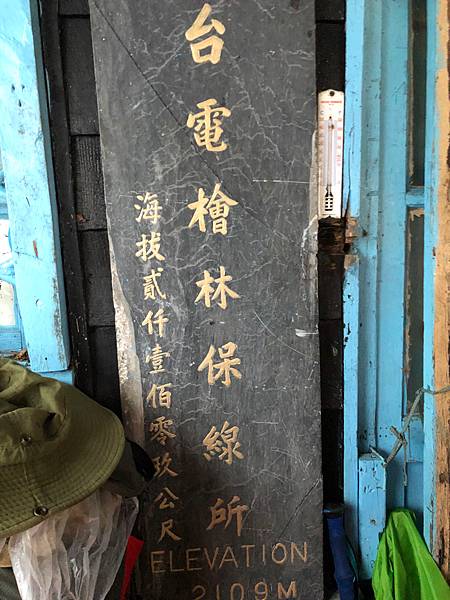 台電檜林保線所
海拔貳仟壹佰零玖公尺
ELEVATION
2109M